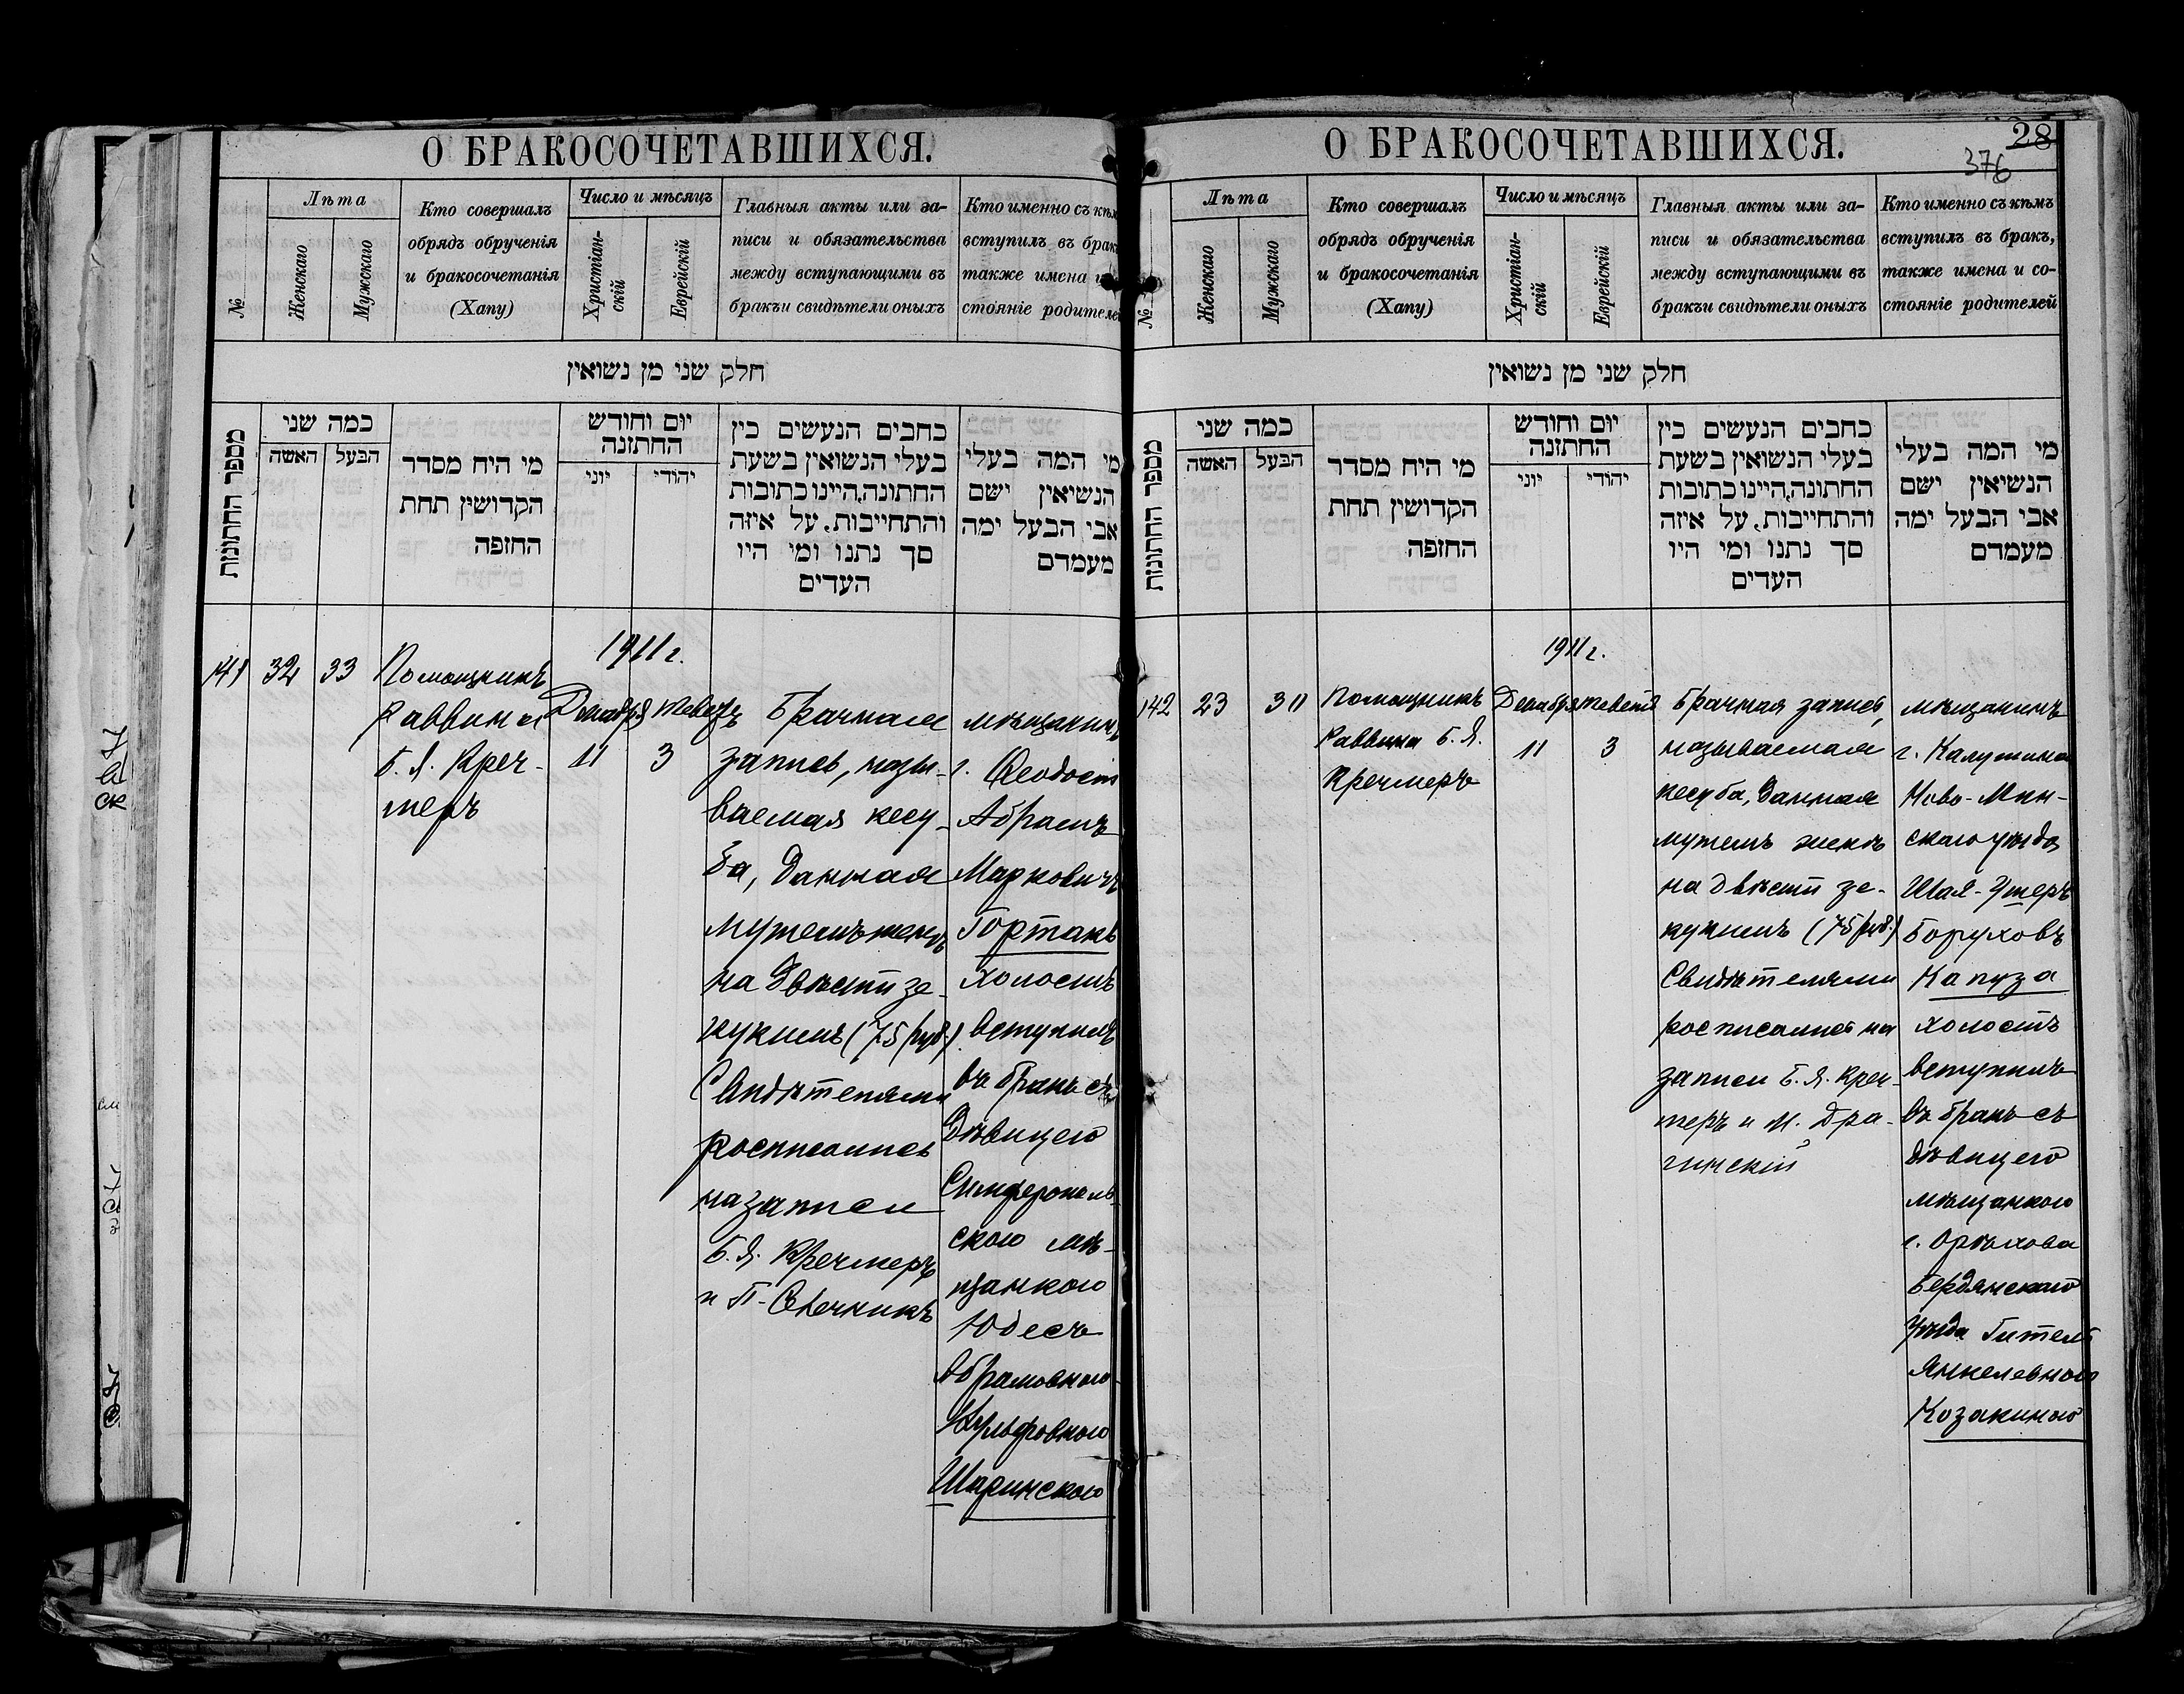 О БРАКОСОЧЕТАВШИХСЯ.
№
Лѣта
Женскаго
Мужскаго
Кто совершалъ
обрядъ обрученія
и бракосочетанія
(Хапу)
Число и мѣсяцъ
Христіан-
скій
Еврейскій
Главныя акты или за-
писи и обязательства
между вступающими въ
бракъи свидѣтели оныхъ
Кто именно съ кѣмъ
вступилъ въ бракъ
также имена и
стояніе родителей
חלק שני מן נשואין
מספר החתונות
כמה שני
האשה
הבעל
מי היח מסדר
הקדושין תחת
החופה
יום וחודש
החתונה
יוני
יהודי
כחבים הנעשים כין
בעלי הנשואין בשעת
החתונה,היינו כתובות
והתחייבות, על איזה
סך נתנו ומי היו
העדים
מי המה בעלי
הנשיאין ישם
אבי הבעל ימה
מעמדם
1911 г.
141
32
33
Помощникъ
раввина
Б. Я. Креч-
меръ
Декабря
11
Теветъ
3
Брачная
запись, назы-
ваемая кесу-
ба, данная
мужемъ женѣ
на двѣсти зе-
кукимъ (75 руб.)
Свидѣтелями
росписались
на записи
Б. Я. Кречмеръ
и П. Свечникъ
мѣщанинъ
г. Ѳеодосіи
Абрамъ
Марковичъ
Гортанъ
холостъ
вступилъ
въ бракъ съ
дѣвицею
Симферополь-
скою мѣ-
щанкою
Юдесъ
Абрамовною-
Вульфовною
Шаринскою
О БРАКОСОЧЕТАВШИХСЯ.
28
376
№
Лѣта
Женскаго
Мужскаго
Кто совершалъ
обрядъ обрученія
и бракосочетанія
(Хапу)
Число и мѣсяцъ
Христіан-
скій
Еврейскій
Главныя акты или за-
писи и обязательства
между вступающими въ
бракъи свидѣтели оныхъ
Кто именно съ кѣмъ
вступилъ въ бракъ,
также имена и со-
стояніе родителей
חלק שני מן נשואין
מספר החתונות
כמה שני
האשה
הבעל
מי היח מסדר
הקדושין תחת
החופה
יום וחודש
החתונה
יוני
יהודי
כחבים הנעשים כין
בעלי הנשואין בשעת
החתונה,היינו כתובות
והתחייבות, על איזה
סך נתנו ומי היו
העדים
מי המה בעלי
הנשיאין ישם
אבי הבעל ימה
מעמדם
1911 г.
142
23
30
Помощникъ
Раввина Б. Я.
Кречмеръ
Декабря
11
Теветъ
3
Брачная запись,
называемая
кесуба, данная
мужемъ женѣ
на двѣсти зе-
кукимъ (75 руб.)
Свидѣтелями
росписались на
записи Б. Я. Креч-
меръ и М. Дра-
гинскій
мѣщанинъ
г. Калушина
Ново-Мин-
скаго уѣзда
Шая-Умеръ
Боруховъ
Капуза
холостъ
вступилъ
въ бракъ съ
дѣвицею
мѣщанкою
г. Орѣхова
Бердянскаго
уѣзда Гитель
Янкелевною
Козакиною